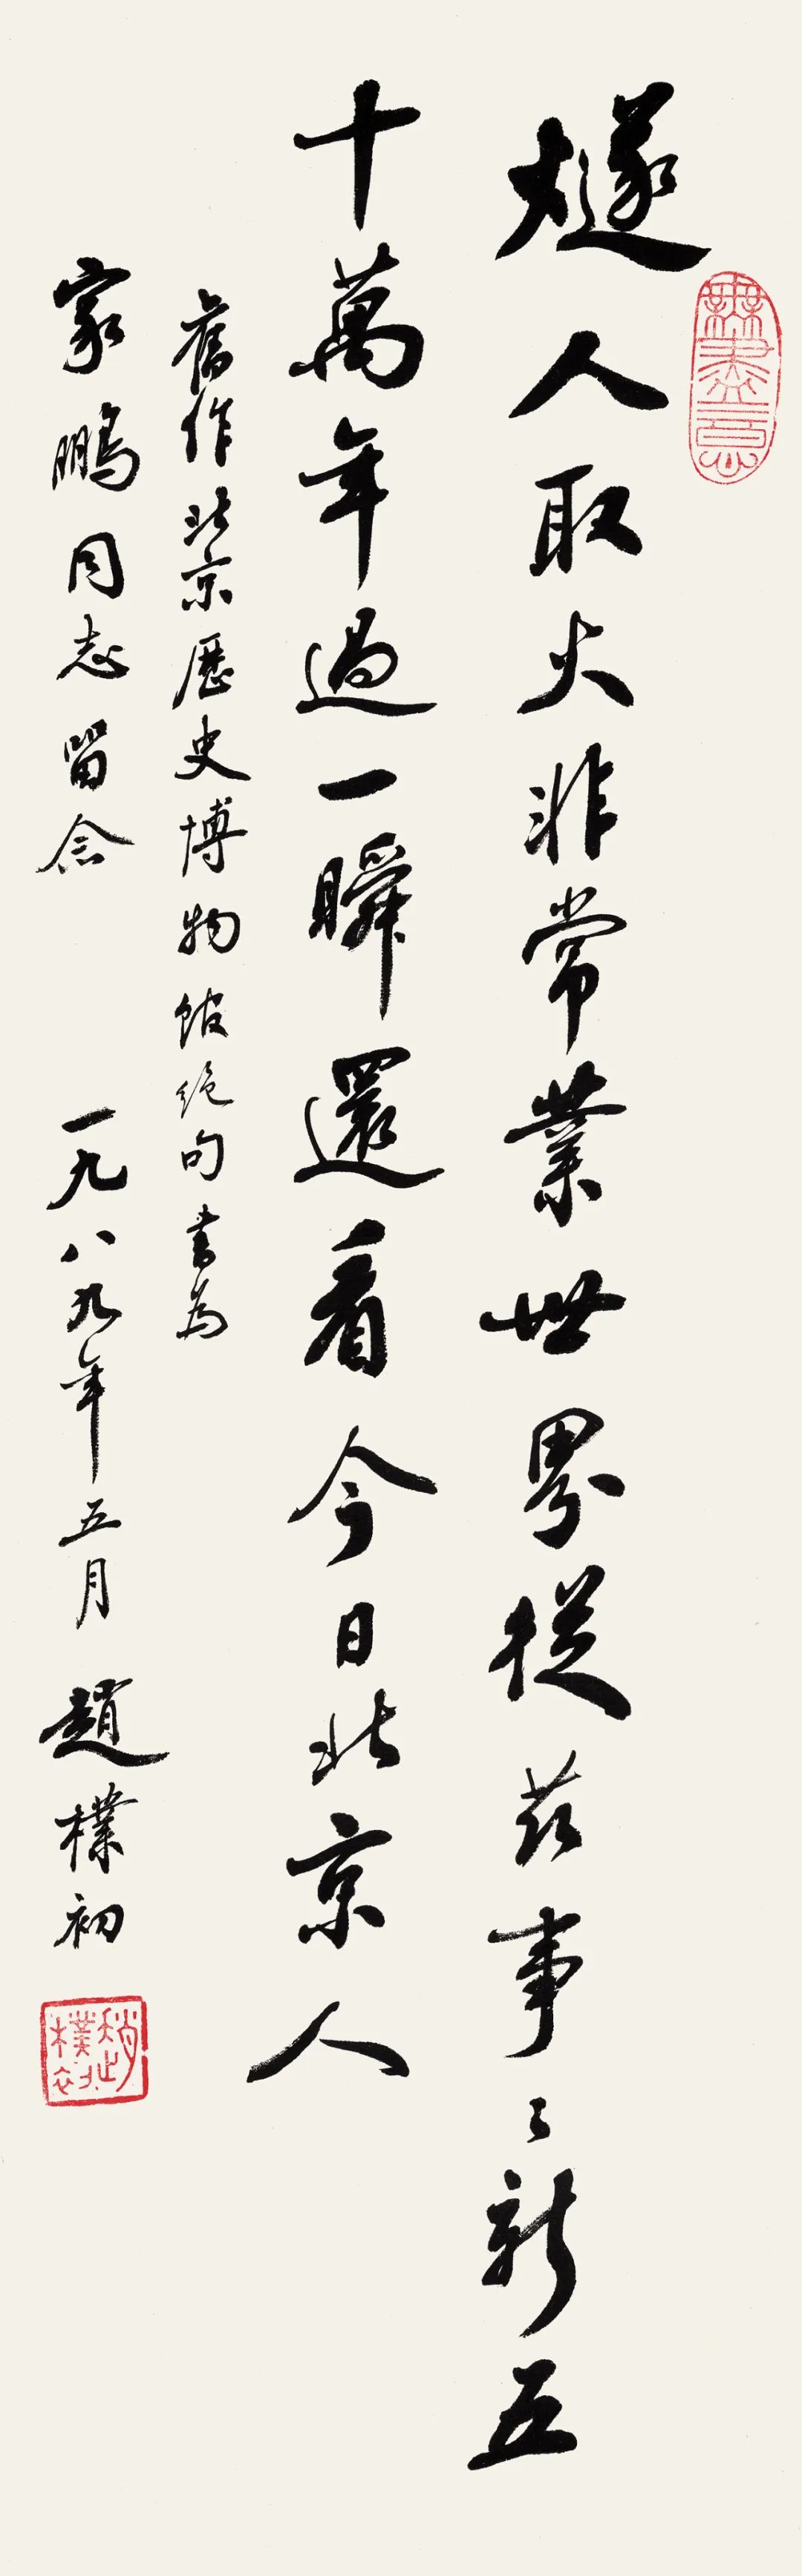 燧人取火非常業世界從茲事〻新五
十萬年過一瞬還看今日北京人
舊作北京歷史博物館絕句書為
家鵬同志留念 一九八九年五月 趙樸初
無盡意
趙樸初